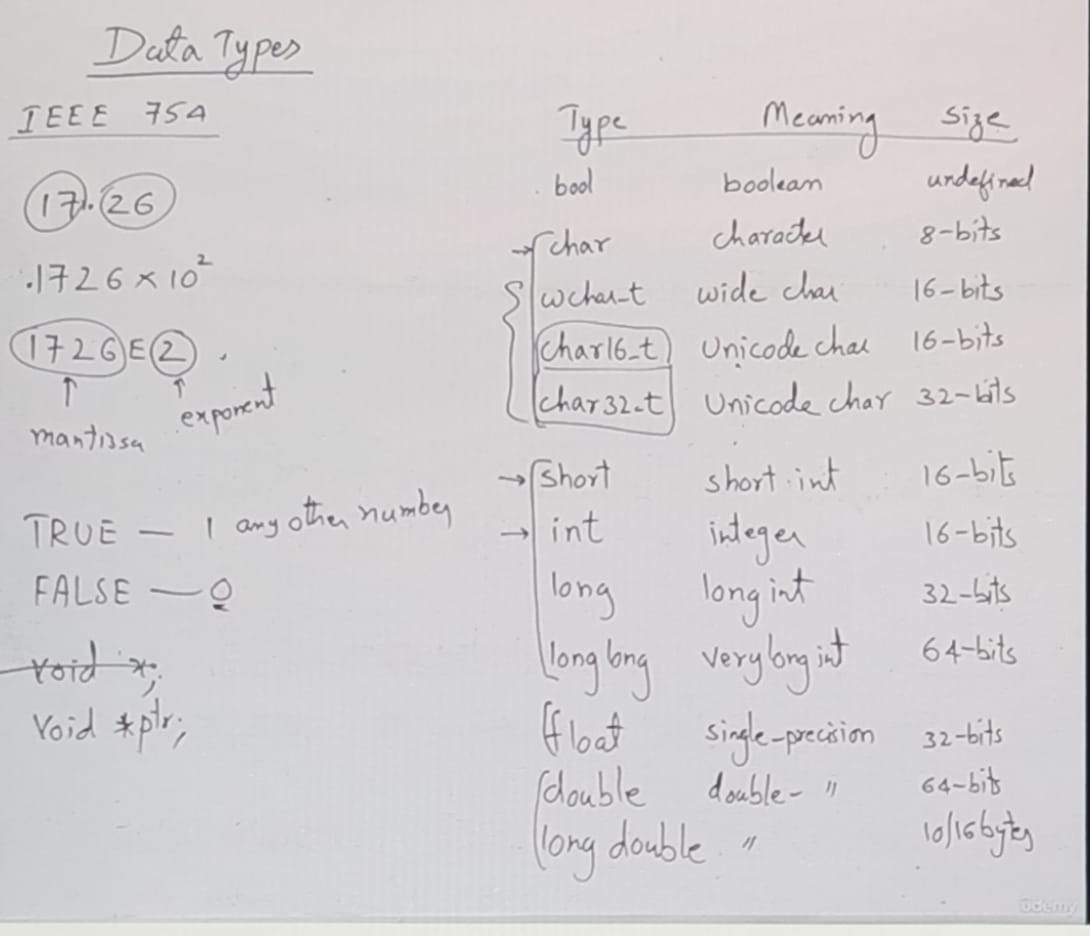 Data Types
IEEE 754
17.26
.1726 × 10²
1726 E 2 .
mantissa
exponent
TRUE — 1 any other number
FALSE — 0
void x;
void *ptr;
Type Meaning Size
bool boolean undefined
char character 8-bits
wchar_t wide char 16-bits
char16_t Unicode char 16-bits
char32_t Unicode char 32-bits
short short int 16-bits
int integer 16-bits
long long int 32-bits
long long very long int 64-bits
float single-precision 32-bits
double double- " 64-bits
long double " 10/16 bytes
ûdemy